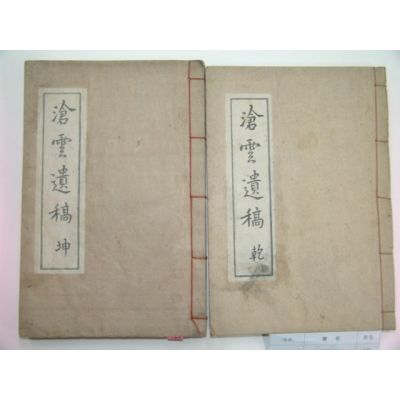 滄雲遺稿 坤
滄雲遺稿 乾